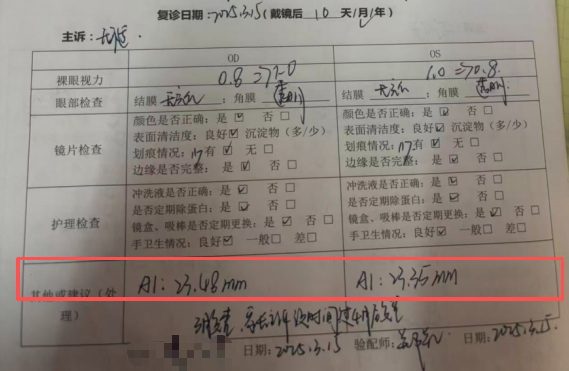 复诊日期：2025.3.15（戴镜后 10 天/月/年）
主诉：无
OD OS
裸眼视力 0.8 1.0 1.0 0.8
眼部检查 结膜 角膜 透明 结膜 角膜 透明
镜片检查
颜色是否正确：是 ☑ 否 □ 颜色是否正确：是 ☑ 否 □
表面清洁度：良好☑ 沉淀物（多/少） 表面清洁度：良好☑ 沉淀物（多/少）
划痕情况：有 ☑ 无 □ 划痕情况：有 ☑ 无 □
边缘是否完整：是 ☑ 否 □ 边缘是否完整：是 ☑ 否 □
护理检查
冲洗液是否正确：是 ☑ 否 □ 冲洗液是否正确：是 ☑ 否 □
是否定期除蛋白：是 ☑ 否 □ 是否定期除蛋白：是 ☑ 否 □
镜盒、吸棒是否定期更换：是 ☑ 否 □ 镜盒、吸棒是否定期更换：是 ☑ 否 □
手卫生情况：良好☑ 一般□ 差□ 手卫生情况：良好☑ 一般□ 差□
其他或建议（处理）
Al：23.48mm Al：23.35mm
日期：2025.3.15 验配师： 2025.3.15.